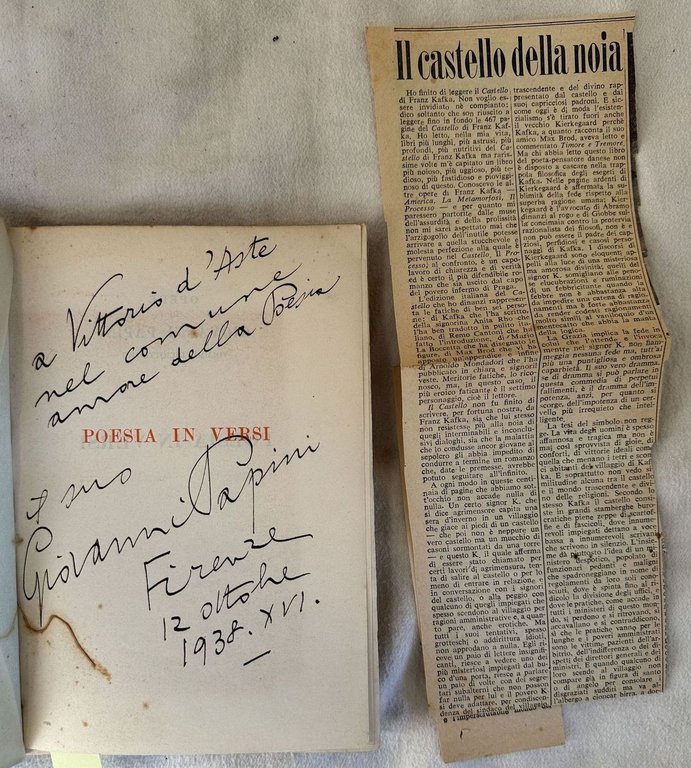 a Vittorio d'Aste
nel comune
amore della Poesia
POESIA IN VERSI
il suo
Giovanni Papini
Firenze
12 ottobre
1938. XVI.
Il castello della noia
Ho finito di leggere il Castello
di Franz Kafka. Non voglio es-
sere invidiato nè compianto:
dico soltanto che son riuscito a
leggere fino in fondo le 467 pa-
gine del Castello di Franz Kaf-
ka. Ho letto, nella mia vita,
libri più lunghi, più astrusi, più
profondi, più nutritivi del Ca-
stello di Franz Kafka ma raris-
sime volte m'è capitato un libro
più noioso, più uggioso, più te-
dioso, più fastidioso e pioviggi-
noso di questo. Conoscevo le al-
tre opere di Franz Kafka —
America, La Metamorfosi, Il
Processo — e per quanto mi
paressero partorite dalle muse
dell'assurdità e della prolissità
non mi sarei aspettato mai che
l'arzigogolo dell'inutile potesse
arrivare a quella stucchevole e
molesta perfezione alla quale è
pervenuto nel Castello. Il Pro-
cesso, al confronto, è un capo-
lavoro di chiarezza e di verità
ed è certo il più difendibile ro-
manzo che sia uscito dal capo
del povero infermo di Praga.
L'edizione italiana del Ca-
stello che ho dinanzi rappresen-
ta le fatiche di ben sei perso-
ne: di Kafka che l'ha scritto,
della signorina Anita Rho che
l'ha ben tradotto in pulito ita-
liano, di Remo Cantoni che ha
fatto l'introduzione, di Mario
La Boccetta che ha disegnato le
figure, di Max Brod che vi ha
aggiunto un'appendice e infine
di Arnoldo Mondadori che l'ha
pubblicato in chiara e signoril
veste. Meritorie fatiche, lo rico-
nosco, ma, in questo caso, il
più eroico faticante è il settimo
personaggio, cioè il lettore.
Il Castello non fu finito di
scrivere, per fortuna nostra, da
Franz Kafka, sia che lui stesso
non resistesse più alla noia di
quegli interminabili e inconclu-
sivi dialoghi, sia che la malattia
che lo condusse ancor giovane al
sepolcro gli abbia impedito di
condurre a termine un romanzo
che, date le premesse, avrebbe
potuto seguitare all'infinito.
A ogni modo in queste centi-
naia di pagine che abbiamo sot-
t'occhio non accade nulla di
nulla. Un certo signor K. che
si dice agrimensore capita una
sera d'inverno in un villaggio
che giace ai piedi di un castello
— che poi non è neppure un
vero castello ma un mucchio di
casoni sormontati da una torre
— e questo K. il quale afferma
di essere stato chiamato per
certi lavori di agrimensura, ten-
ta di salire al castello o per lo
meno di entrare in relazione e
in conversazione con i signori
del castello, o alla peggio con
qualcuno di quegli impiegati che
spesso scendono al villaggio per
ragioni amministrative e, a quan-
to pare, anche erotiche. Ma
tutti i suoi tentativi, spesso
grotteschi o addirittura idioti,
non approdano a nulla. Egli ri-
ceve un paio di lettere insignifi-
canti, riesce a vedere uno dei
più misteriosi impiegati dal bu-
co d'una porta, riesce a parlare
un paio di volte con dei segre-
tari subalterni che non posson
far nulla per lui e il povero K.
deve adattarsi, per condiscen-
denza del sindaco del villaggio
trascendente e del divino rap-
presentato dal castello e dai
suoi capricciosi padroni. E sic-
come oggi è di moda l'esisten-
zialismo s'è tirato fuori anche
il vecchio Kierkegaard perchè
Kafka, a quanto racconta il suo
amico Max Brod, aveva letto e
commentato Timore e Tremore.
Ma chi abbia letto questo libro
del poeta-pensatore danese non
è disposto a cascare nella trap-
pola filosofica degli esegeti di
Kafka. Nelle pagine ardenti di
Kierkegaard è affermata la su-
blimità della fede rispetto alla
superba ragione umana; Kier-
kegaard è l'avvocato di Abramo
dinanzi al rogo e di Giobbe sul-
la concimaia contro la proterva
razionalista dei filosofi, non è e
non può essere il padre dei ca-
pziosi, perfidiosi e casosi perso-
naggi di Kafka. I discorsi di
Kierkegaard sono eloquenti ap-
pelli alla luce di una misteriosa
ma amorosa divinità; quelli del
signor K. somigliano alle penose
elucubrazioni e recriminazioni
di un febbricitante quando la
febbre non è abbastanza alta
da impedire una catena di ragio-
namenti ma è forte abbastanza
da render codesti ragionamenti
molto simili ai vaniloqui d'un
mentecatto che abbia la manìa
della logica.
La Grazia implica la fede in
chi l'attende, e l'innominata-
mente nel signor K. non fiam-
meggia nessuna fede ma, tutt'al
più una puntigliosa e ombrosa
caparbietà. Il suo vero dramma,
se di dramma si può parlare in
questa commedia di perpetui
fallimenti, è il dramma dell'im-
potenza, anzi, per quanto si
scorge, dell'impotenza di un cer-
vello più irrequieto che intel-
ligente.
La tesi del simbolo non regge.
La vita degli uomini è spesso
affannosa e tragica ma non è
mai così sprovvista di gioie, di
conforti, di vittorie ideali come
quella che menano i tetri e scon-
ci abitanti del villaggio di Kaf-
ka. E soprattutto non vedo si-
militudine alcuna tra il castello
e il mondo trascendente e divi-
no delle religioni. Secondo lo
stesso Kafka il castello consiste
in grandi stamberghe buro-
cratiche piene zeppe di scartof-
fie e di fascicoli, dove innume-
revoli impiegati dettano a voce
bassa a innumerevoli scrivani
che scrivono in silenzio. L'insie-
me dà piuttosto l'idea di un mi-
nistero dispotico, popolato di
funzionari pedanti e maligni
che spadroneggiano in nome di
regolamenti da loro soli cono-
sciuti, dove è spinta fino al ri-
dicolo la divisione degli uffici, e
dove le pratiche, come accade, in
tutti i ministeri di questo mon-
do, si perdono e si ritrovano, si
accavallano e si contraddicono,
sì che le pratiche vanno per le
lunghe e i poveri amministrati
sono le vittime, pazienti dell'ar-
bitrio, dell'indifferenza o dei di-
spetti dei direttori generali e dei
segretari. E quando qualcuno di
loro scende al villaggio non
compare già in figura di santo
o di angelo per consolare i
disgraziati sudditi ma va al-
l'albergo a cioncar birra, a dor-